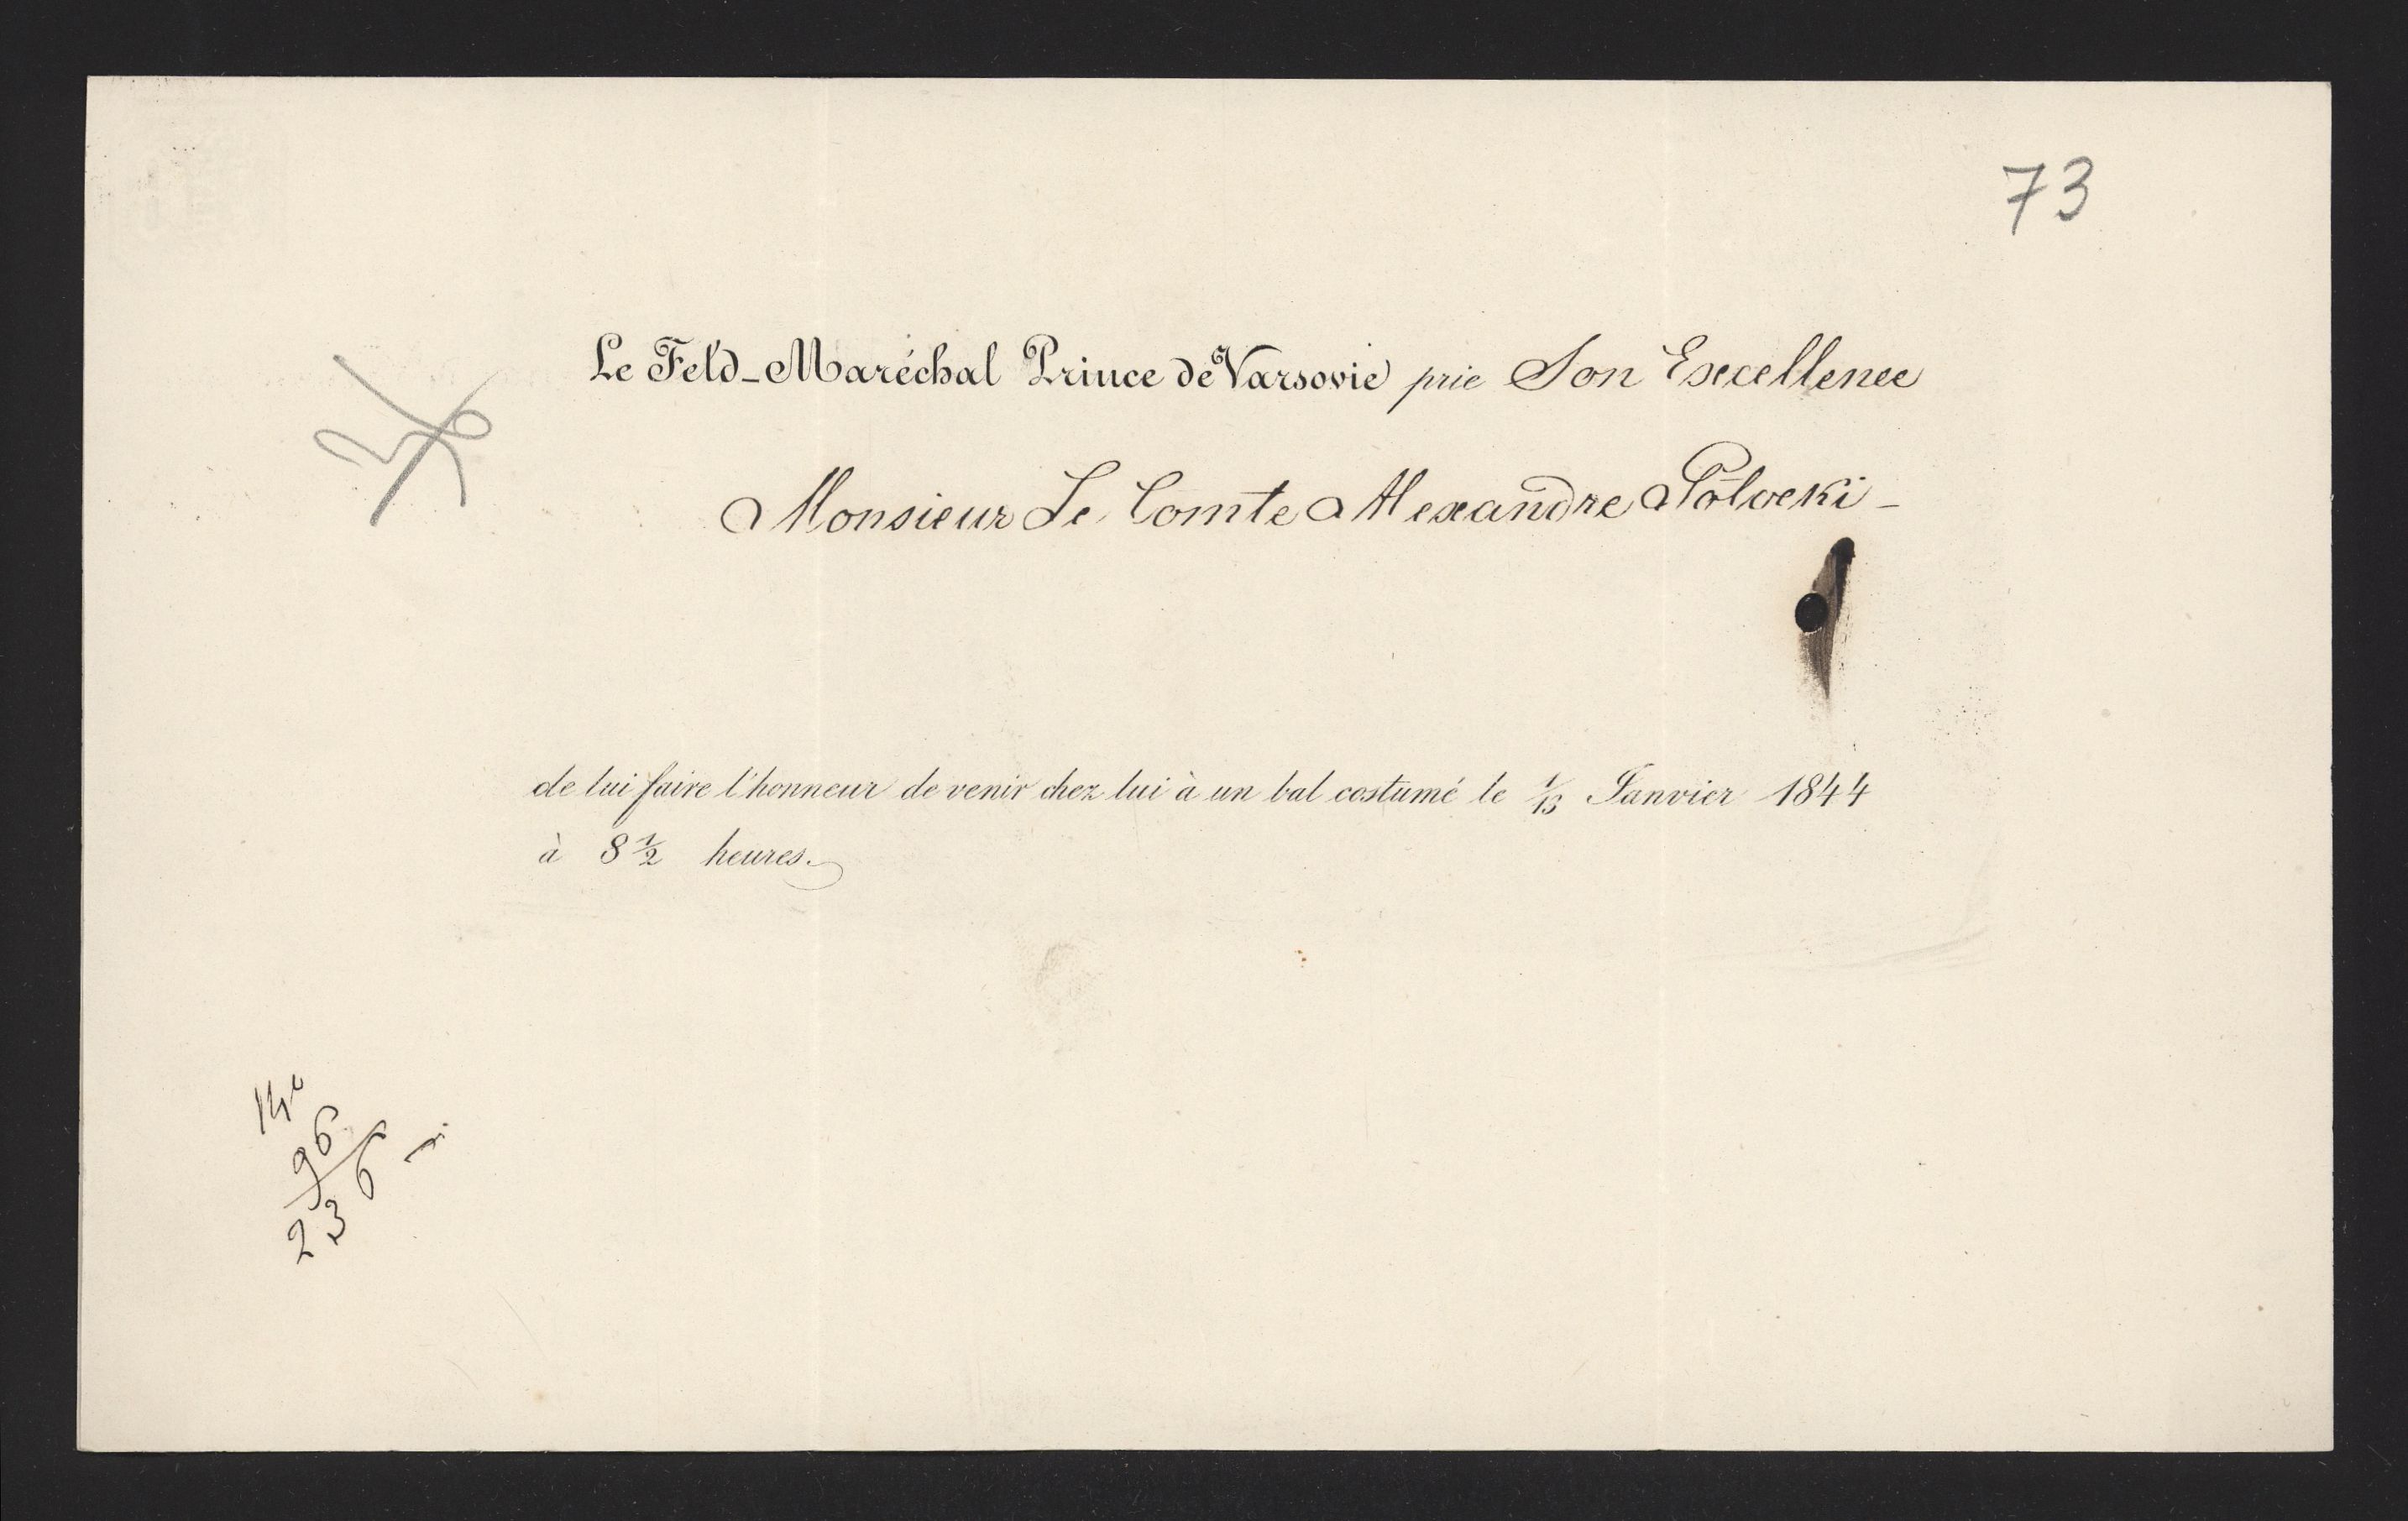 73
Le Feld-Maréchal Prince de Varsovie prie Son Excellence
Monsieur Le Comte Alexandre
de lui faire l'honneur de venir chez lui à un bal costumé le 1/13 Janvier 1844
à 8 1/2 heures.
96
236